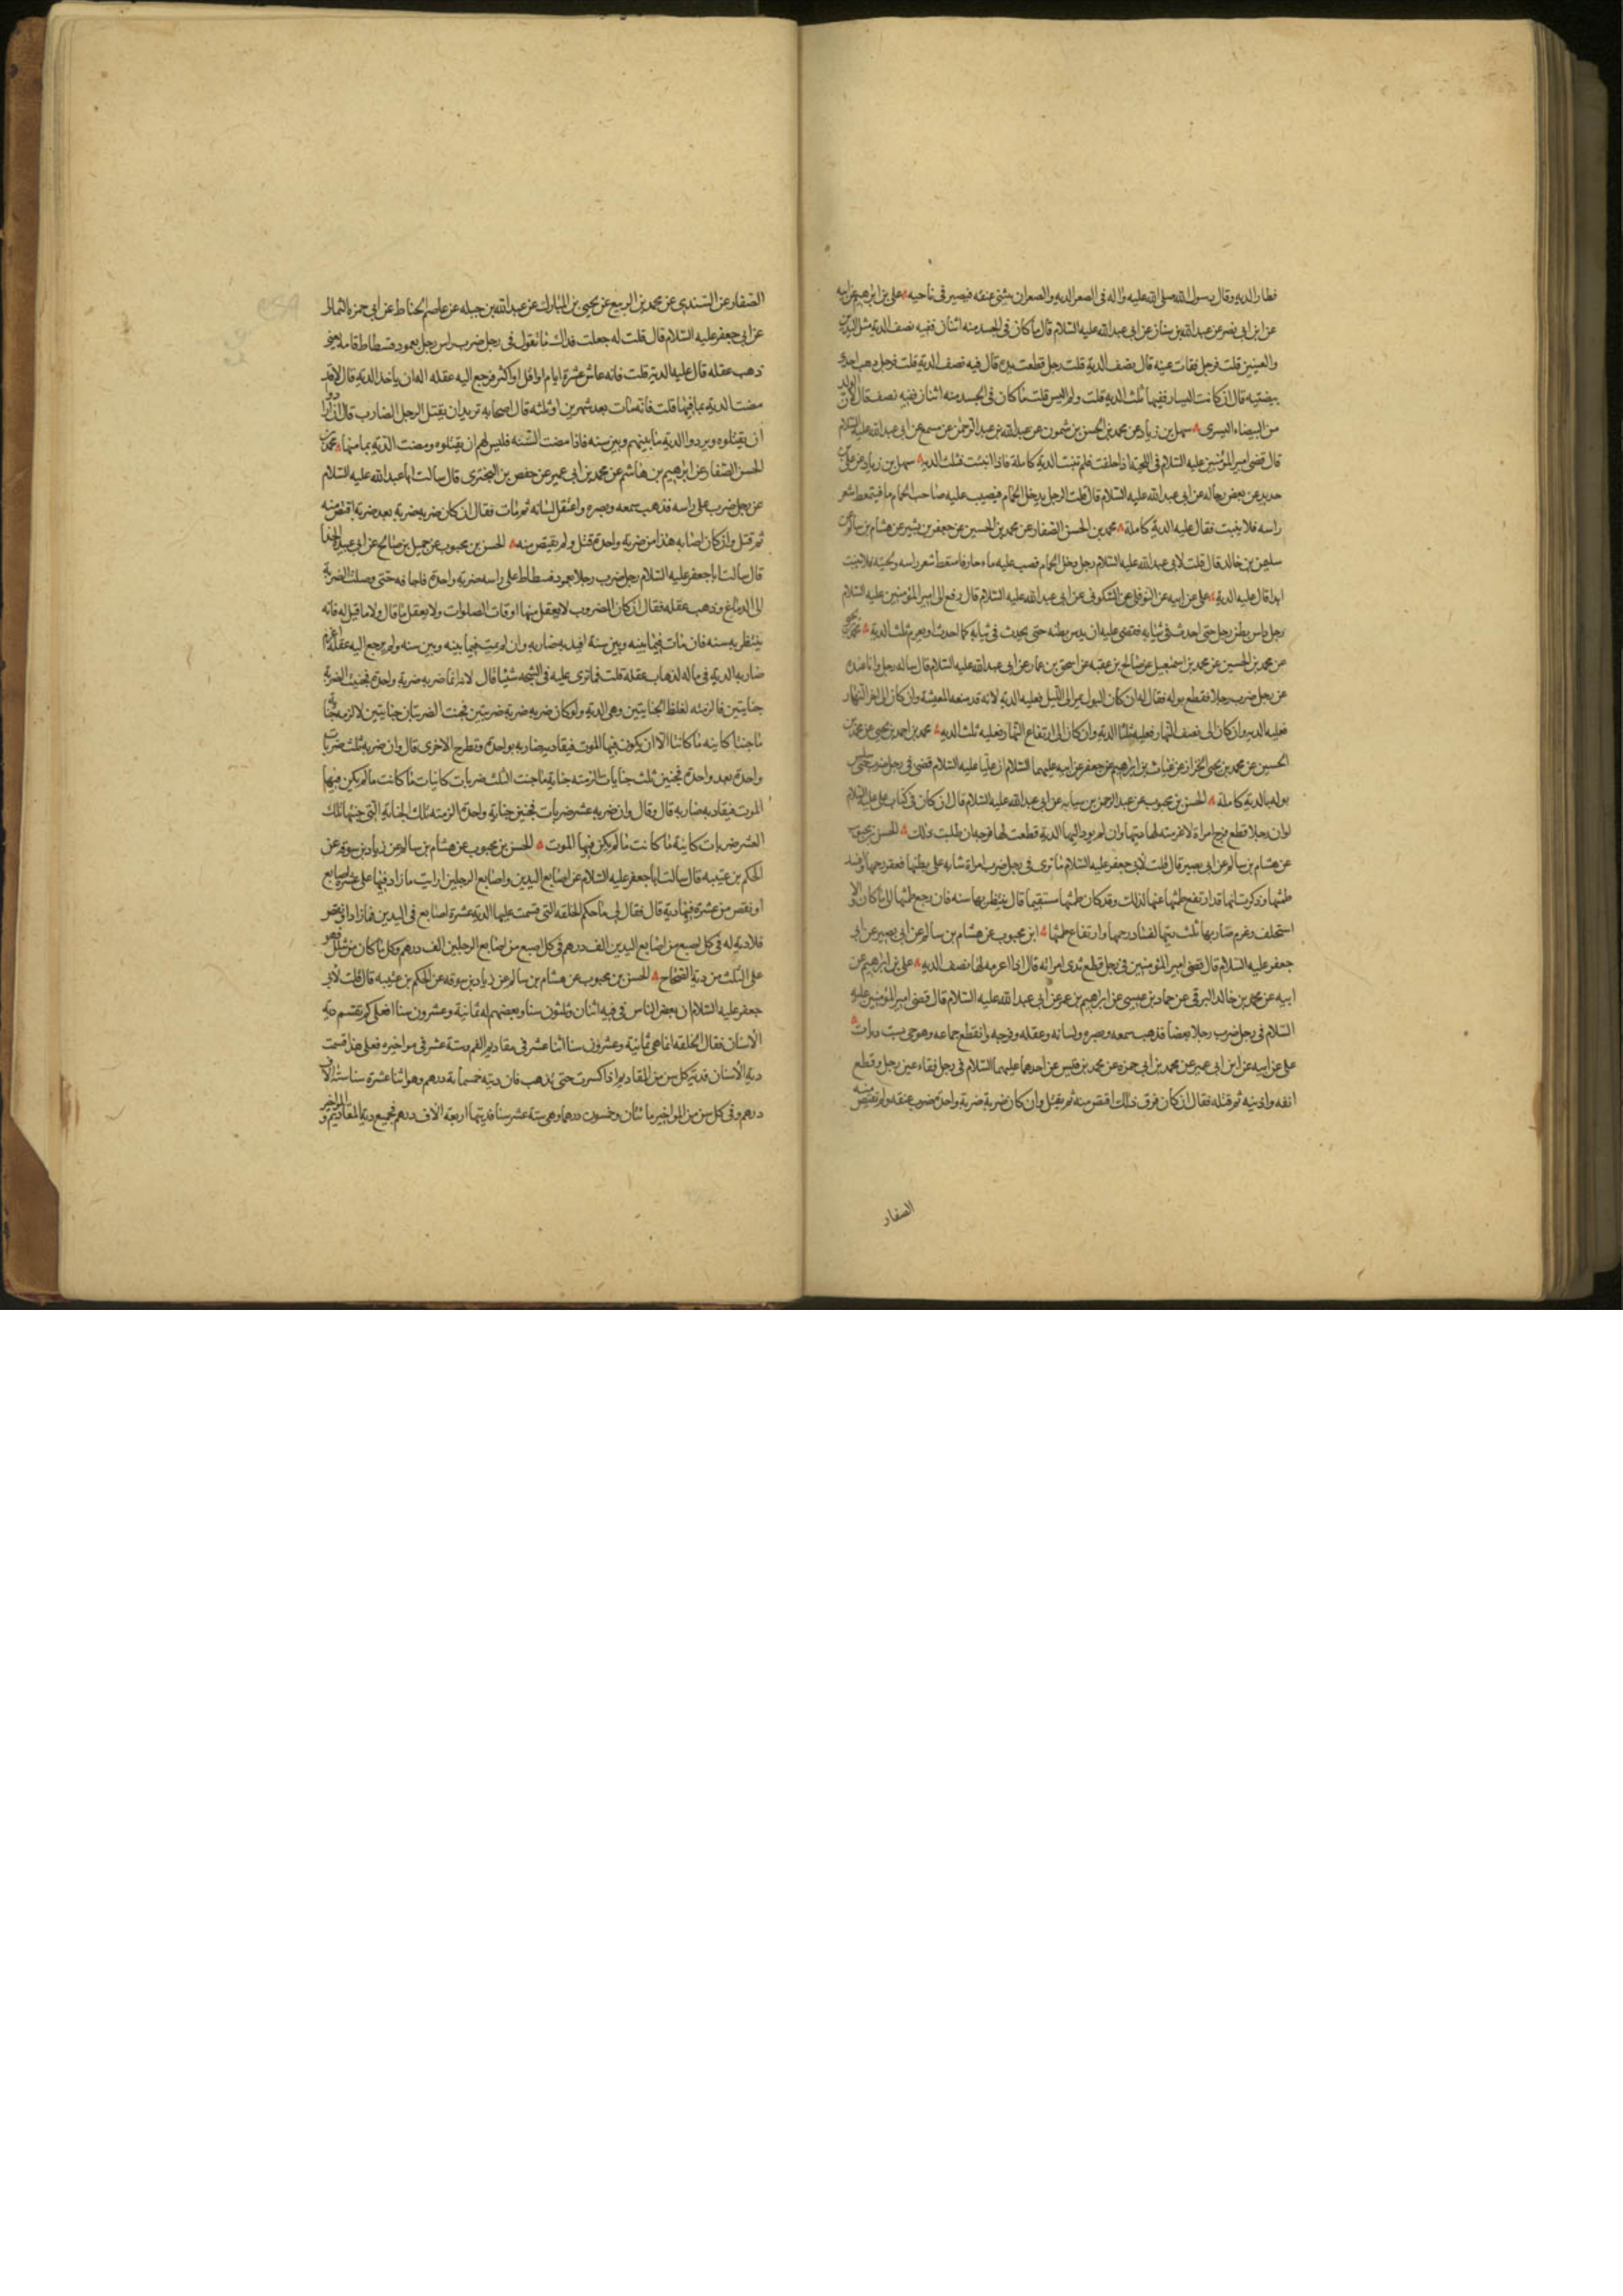 فطار الدية وقال رسول الله صلى الله عليه واله فى الصعر الدية والصعر ان يثنى عنقه فيصير فى ناحيه على بن ابرهيم عن ابيه
عن ابن ابى نصر عن عبدالله بن سنان عن ابى عبدالله عليه السلام قال ما كان فى الجسد منه اثنان ففيه نصف الدية مثل اليدين
والعينين قلت فرجل فقات عينه قال نصف الدية قلت رجل قطعت يده قال فيه نصف الدية قلت فرجل ذهب احدى
بيضتيه قال ان كانت اليسار ففيها ثلث الدية قلت ولم اليس قلت ما كان فى الجسد منه اثنان ففيه نصف قال لان الولد
من البيضاء اليسرى سهل بن زياد عن محمد بن الحسن بن شمون عن عبدالله بن عبدالرحمن عن مسمع عن ابى عبدالله عليه السلام
قال قضى امير المؤمنين عليه السلام فى اللحية اذا حلقت فلم تنبت الدية كاملة فاذا انبتت فثلث الدية سهل بن زياد عن على بن
حديد عن بعض رجاله عن ابى عبدالله عليه السلام قال قلت الرجل يدخل الحمام فيصب عليه صاحب الحمام ما فيتمعط شعر
راسه فلا ينبت فقال عليه الدية كاملة محمد بن الحسن الصفار عن محمد بن الحسين عن جعفر بن بشير عن هشام بن سالم عن
سليمن بن خالد قال قلت لابى عبدالله عليه السلام رجل دخل الحمام فصب عليه ماء حار فاسقط شعر راسه ولحيته فلا ينبت
ابدا قال عليه الدية على عن ابيه عن النوفلى عن السكونى عن ابى عبدالله عليه السلام قال رفع الى امير المؤمنين عليه السلام
رجل داس بطن رجل حتى احدث فى ثيابه فقضى عليه ان يداس بطنه حتى يحدث فى ثيابه كما احدث او يغرم ثلث الدية محمد بن يحيى
عن محمد بن الحسين عن محمد بن اسمعيل عن صالح بن عقبه عن اسحق بن عمار عن ابى عبدالله عليه السلام قال ساله رجل وانا عنده
عن رجل ضرب رجلا فقطع بوله فقال له ان كان البول يمر الى الليل فعليه الدية لانه قد منعه المعيشة وان كان الى اخر النهار
فعليه الدية وان كان الى نصف النهار فعليه ثلثا الدية وان كان الى ارتفاع النهار فعليه ثلث الدية محمد بن احمد بن يحيى عن محمد بن
الحسين عن محمد بن يحيى الخزاز عن غياث بن ابرهيم عن جعفر عن ابيه عليهما السلام ان عليا عليه السلام قضى فى رجل ضرب حتى سلس
بوله بالدية كاملة الحسن بن محبوب عن عبدالرحمن بن سيابه عن ابى عبدالله عليه السلام قال ان كان فى كتاب على عليه السلام
لو ان رجلا قطع فرج امراة لاغرمته لها ديتها وان لم يود اليها الدية قطعت لها فرجه ان طلبت ذلك الحسن بن محبوب
عن هشام بن سالم عن ابى بصير قال قلت لابى جعفر عليه السلام ما ترى فى رجل ضرب امراة شابه على بطنها فعقر رحمها وافسد
طمثها وذكرت انها قد ارتفع طمثها عنها لذلك وقد كان طمثها مستقيما قال ينتظر بها سنه فان رجع طمثها الى ما كان والا
استحلفت وغرم ضاربها ثلث ديتها لفساد رحمها وارتفاع طمثها ابن محبوب عن هشام بن سالم عن ابى بصير عن ابى
جعفر عليه السلام قال قضى امير المؤمنين فى رجل قطع ثدى امراته قال اذا اغرمه لها نصف الدية على بن ابرهيم عن
ابيه عن محمد بن خالد البرقى عن حماد بن عيسى عن ابرهيم بن عمر عن ابى عبدالله عليه السلام قال قضى امير المؤمنين عليه
السلام فى رجل ضرب رجلا بعصا فذهب سمعه وبصره ولسانه وعقله وفرجه وانقطع جماعه وهو حى بست ديات
على عن ابيه عن ابن ابى عمير عن محمد بن ابى حمزه عن محمد بن قيس عن احدهما عليهما السلام فى رجل فقاء عين رجل وقطع
انفه واذنيه ثم قتله فقال ان كان فرق ذلك اقتص منه ثم يقتل وان كان ضربة ضربة واحدة ضرب عنقه ولم يقتص منه
الصفار
الصفار عن السندى عن محمد بن الربيع عن يحيى بن المبارك عن عبدالله بن جبله عن عاصم الحناط عن ابى حمزه الثمالى
عن ابى جعفر عليه السلام قال قلت له جعلت فداك ما تقول فى رجل ضرب راس رجل بعمود فسطاط فامه يعنى
ذهب عقله قال عليه الدية قلت فانه عاش عشرة ايام او اقل او اكثر فرجع اليه عقله اله ان ياخذ الدية قال لا قد
مضت الدية بما فيها قلت فانه مات بعد شهرين او ثلثه قال اصحابه نريد ان يقتل الرجل الضارب قال ان ارادوا
ان يقتلوه ويردوا الدية ما بينهم وبين سنه فاذا مضت السنه فليس لهم ان يقتلوه ومضت الدية بما منها محمد بن
الحسن الصفار عن ابرهيم بن هاشم عن محمد بن ابى عمير عن حفص بن البخترى قال سالت ابا عبدالله عليه السلام
عن رجل ضرب على راسه فذهب سمعه وبصره واعتقل لسانه ثم مات فقال ان كان ضربه ضربة بعد ضربة اقتص منه
ثم قتل وان كان اصابه هذا من ضربة واحدة قتل ولم يقتص منه الحسن بن محبوب عن جميل بن صالح عن ابى عبيدة الحذاء
قال سالت ابا جعفر عليه السلام رجل ضرب رجلا بعمود فسطاط على راسه ضربة واحدة فاجافه حتى وصلت الضربة
الى الدماغ وذهب عقله فقال ان كان المضروب لا يعقل منها اوقات الصلوات ولا يعقل ما قال ولا ما قيل له فانه
ينتظر به سنه فان مات فيما بينه وبين سنة اقيد به ضاربه وان لم يمت فيما بينه وبين سنه ولم يرجع اليه عقله اغرم
ضاربه الدية فى ماله لذهاب عقله قلت فما ترى عليه فى الشجه شيئا قال لا انما ضربه ضربة واحدة فجنت الضربة
جنايتين فالزمته اغلظ الجنايتين وهى الدية ولو كان ضربه ضربة ضربتين فجنت الضربتان جنايتين لالزمه جناية
ما جنتا كاينه ما كانتا الا ان يكون فيها الموت فيقاد به ضاربه بواحدة وتطرح الاخرى قال وان ضربه ثلث ضربات
واحدة بعد واحدة فجنين ثلث جنايات الزمته جناية ما جنت الثلث ضربات كاينات ما كانت ما لم يكن فيها
الموت فيقاد به ضاربه قال وقال وان ضربه عشر ضربات فجنين جناية واحدة الزمته تلك الجناية التى جنتها تلك
العشر ضربات كاينة ما كانت ما لم يكن فيها الموت الحسن بن محبوب عن هشام بن سالم عن زياد بن سوقه عن
الحكم بن عتيبه قال سالت ابا جعفر عليه السلام عن اصابع اليدين واصابع الرجلين ارايت ما زاد فيها على عشرة اصابع
او نقص من عشرة فيها دية قال فقال لى يا حكم الخلقة التى قسمت عليها الدية عشرة اصابع فى اليدين فما زاد او نقص
فلا دية له فى كل اصبع من اصابع اليدين الف درهم وفى كل اصبع من اصابع الرجلين الف درهم وكل ما كان من شلل فهو
على الثلث من دية الصحاح الحسن بن محبوب عن هشام بن سالم عن زياد بن سوقه عن الحكم بن عتيبه قال قلت لابى
جعفر عليه السلام ان بعض الناس فى فيه اثنان وثلثون سنا وبعضهم له ثمانية وعشرون سنا فعلى كم تقسم دية
الاسنان فقال الخلقة انما هى ثمانية وعشرون سنا اثنا عشر فى مقاديم الفم وستة عشر فى مواخيره فعلى هذا قسمت
دية الاسنان فدية كل سن من المقاديم اذا كسرت حتى يذهب فان ديته خمسمأة درهم وهى اثنا عشرة سنا ستة الاف
درهم وفى كل سن من المواخير مائتان وخمسون درهما وهى ستة عشر سنا فديتها اربعة الاف درهم فجميع دية المقاديم والمواخير